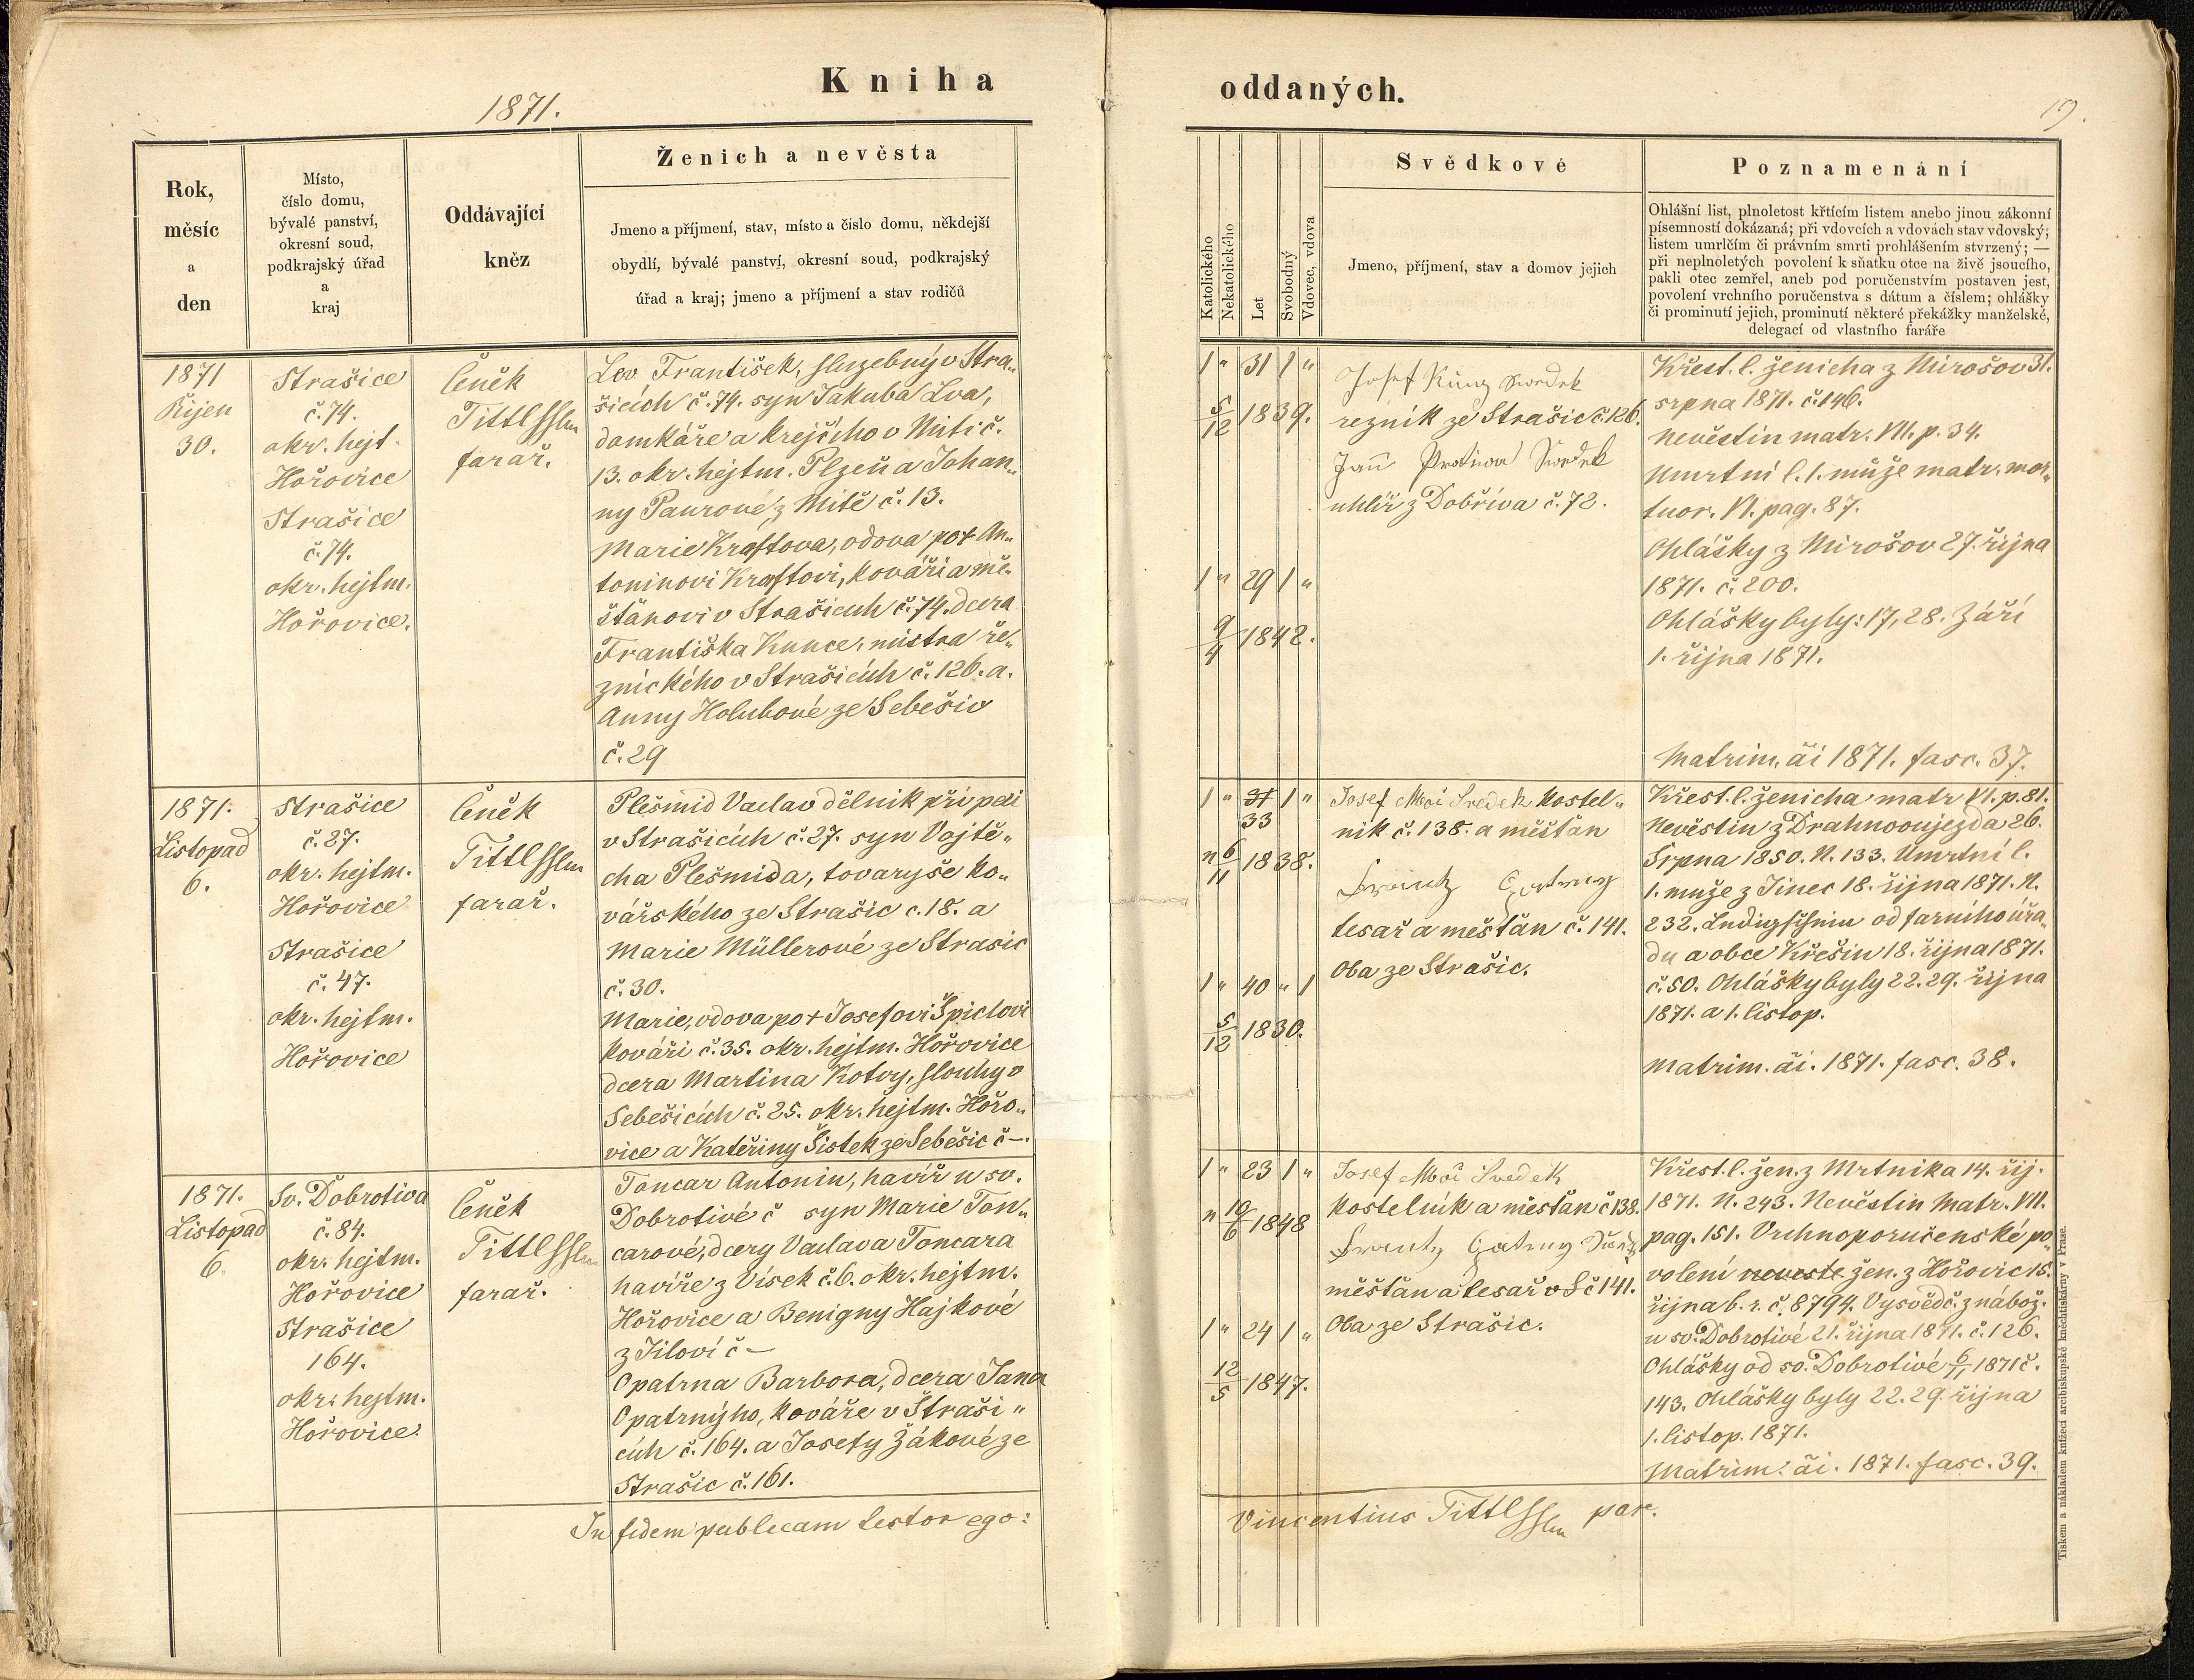 Kniha
oddaných.
1871.
19.
Rok,
měsíc
a
den
Místo,
číslo domu,
bývalé panství,
okresní soud,
podkrajský úřad
a
kraj
Oddávající
kněz
Ženich a nevěsta
Jmeno a příjmení, stav, místo a číslo domu, někdejší
obydlí, bývalé panství, okresní soud, podkrajský
úřad a kraj; jmeno a příjmení a stav rodičů
Katolického
Nekatolického
Let
Svobodný
Vdovec, vdova
Svědkové
Jmeno, příjmení, stav a domov jejich
Poznamenání
Ohlášní list, plnoletost křtícím listem anebo jinou zákonní
písemností dokázaná; při vdovcích a vdovách stav vdovský;
listem umrlčím či právním smrti prohlášením stvrzený; —
při neplnoletých povolení k sňatku otce na živě jsoucího,
pakli otec zemřel, aneb pod poručenstvím postaven jest,
povolení vrchního poručenstva s dátum a číslem; ohlášky
či prominutí jejich, prominutí některé překážky manželské,
delegací od vlastního faráře
1871
Řijen
30.
Strašice
č. 74.
okr. hejt.
Hořovice
Strašice
č. 74.
okr. hejtm.
Hořovice.
Čeněk
Tittl
farař.
Lev František, služebný v Stra„
šicích č. 74. syn Jakuba Lva,
domkáře a krejčího v Miti č.
13. okr. hejtm. Plzeň a Johan„
ny Paurové z Mitě č. 13.
Marie Kraftova, vdova po + An„
toninovi Kraftovi, kováři a mě„
šťanovi v Strašicích č. 74. dcera
Františka Kunce, mistra ře„
znického v Strašicích č. 126. a.
Anny Holubové ze Sebešic
č. 29
1 " 31 1 "
5/12 1839.
1 " 29 1 "
9/4 1842.
Josef Kunz svedek
řezník ze Strašic č. 126.
Jan
uhlíř z Dobříva č. 72.
Křest. l. ženicha z Mirošov 31.
srpna 1871. č. 146.
Nevěstin matr. VII. p. 34.
Umrtní l. 1. může matr. mor„
tuor. VI. pag. 87.
Ohlášky z Mirošov 27. října
1871. č. 200.
Ohlášky byly: 17, 28. Září
1. října 1871.
Matrim. ăi 1871. fasc. 37.
1871.
Listopad
6.
Strašice
č. 27.
okr. hejtm.
Hořovice
Strašice
č. 47.
okr. hejtm.
Hořovice
Čeněk
Tittl
farař.
Plešmid Vaclav dělnik při peci
v Strašicích č. 27. syn Vojtě„
cha Plešmida, tovaryše ko„
vářského ze Strašic č. 18. a
Marie Müllerové ze Strasic
č. 30.
Marie, vdova po + Josefovi Špiclovi
kováři č. 35. okr. hejtm. Hořovice
dcera Martina Kotvy, slouhy v
Sebešicích č. 25. okr. hejtm. Hořo„
vice a Kateřiny Šistek ze Sebešic č —.
1 " 31 1 "
33
" 6/11 1838.
1 " 40 " 1
5/12 1830.
Josef Svedek kostel„
nik č. 138. a měšťan
tesař a mešťan č. 141.
Oba ze Strašic.
Křest. l. ženicha matr VI. p. 81.
Nevěstin z Drahnooujezda 26.
Srpna 1850. N. 133. Umrtní l.
1. muže z Jinec 18. října 1871. N.
232. od farního úřa„
du a obce Křešin 18. října 1871.
č. 50. Ohlášky byly 22. 29. října
1871. a 1. listop.
Matrim. ăi. 1871. fasc. 38.
1871.
Listopad
6.
Sv. Dobrotiva
č. 84.
okr. hejtm.
Hořovice
Strašice
164.
okr. hejtm.
Hořovice.
Čeněk
Tittl
farař.
Toncar Antonin, havíř u sv.
Dobrotivé č syn Marie Ton„
carové, dcery Vaclava Toncara
havíře z Vísek č. 6. okr. hejtm.
Hořovice a Benigny Hajkové
z Jiloví č —
Opatrna Barbora, dcera Jana
Opatrnýho, kováře v Straši„
cích č. 164. a Josefy Žákové ze
Strašic č. 161.
1 " 23 1 "
" 10/6 1848
1 " 24 1 "
12/5 1847.
Josef Svedek
kostelník a mešťan č 138.
měšťan a tesař v S č 141.
Oba ze Strašic.
Křest. l. žen. z Mrtnika 14. říj.
1871. N. 243. Nevěstin Matr. VII.
pag. 151. Vrchnoporučenské po„
volení neveste žen. z Hořovic 15.
října b. r. č. 8794. Vysvědč. z nábož.
u sv. Dobrotivé 21. října 1871. č. 126.
Ohlášky od sv. Dobrotivé 6/11 1871 č.
143. Ohlášky byly 22. 29. října
1. listop. 1871.
Matrim. ăi. 1871. fasc. 39.
In fidem publicam testor ego:
Vincentius Tittl par.
Tiskem a nákladem knížecí arcibiskupské knihtiskárny v Praze.